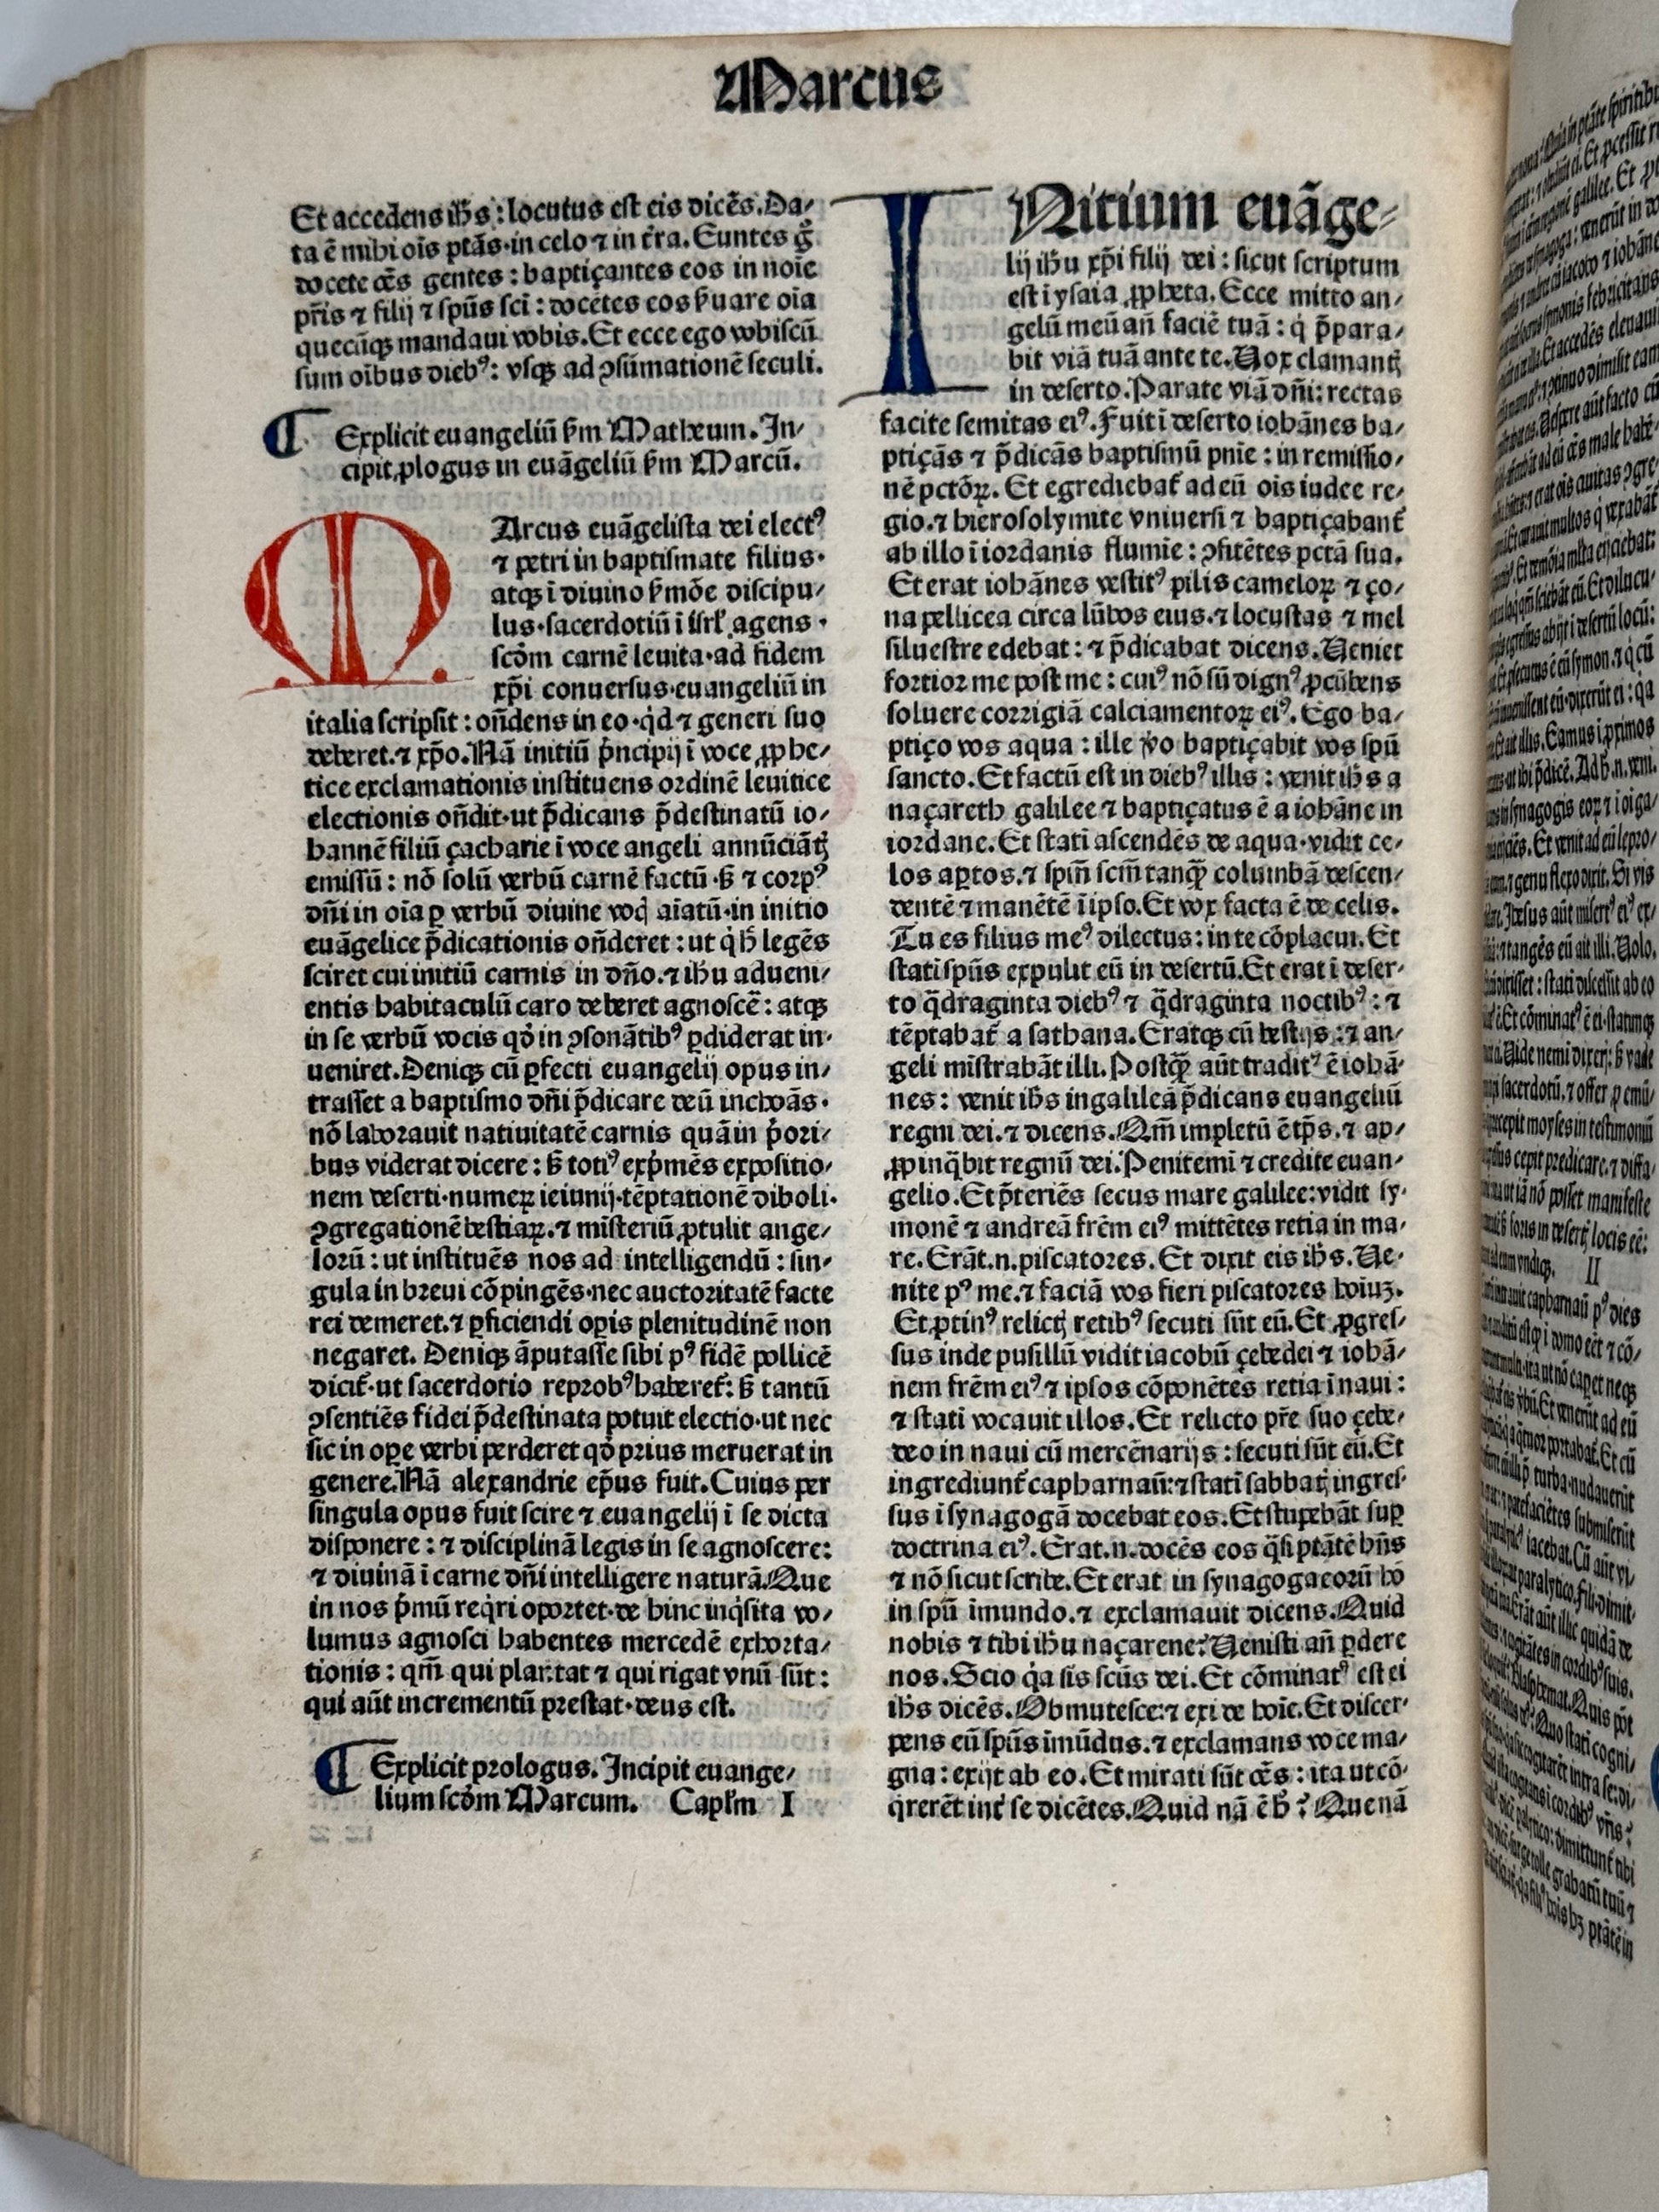 Marcus
Et accedens ihs̄: locutus est eis dicēs. Da⸗
ta ē mihi oīs ptās·in celo ⁊ in t̄ra. Euntes g̊
docete oēs gentes: baptiçantes eos in noīe
pr̄is ⁊ filij ⁊ spūs sci: docētes eos ẜuare oīa
quecūqꝫ mandaui vobis. Et ecce ego vobiscū
sum oībus diebꝰ: vsqꝫ ad ꝯsūmationē seculi.
Explicit euangeliū ẜm Matheum. In⸗
cipit ꝓlogus in euāgeliū ẜm Marcū.
MArcus euāgelista dei electꝰ
⁊ petri in baptismate filius·
atqꝫ ī diuino ẜmōe discipu⸗
lus·sacerdotiū ī isrl̓ agens·
scd̓m carnē leuita·ad fidem
xp̄i conuersus·euangeliū in
italia scripsit: on̄dens in eo·qd̓ ⁊ generi suo
deberet.⁊ xp̄o. Nā initiū pⁱncipij ī voce ꝓphe⸗
tice exclamationis instituens ordinē leuitice
electionis on̄dit·ut p̄dicans p̄destinatū io⸗
hannē filiū çacharie ī voce angeli annūciātꝭ
emissū: nō solū verbū carnē factū·ẜꝫ ⁊ corpꝰ
dn̄i in oīa ꝑ verbū diuine vocꝭ aīatū·in initio
euāgelice p̄dicationis on̄deret: ut qⁱ h̓ legēs
sciret cui initiū carnis in dn̄o.⁊ ihū adueni⸗
entis habitaculū caro deberet agnoscē: atqꝫ
in se verbū vocis qd̓ in ꝯsonātibꝰ ꝑdiderat in⸗
ueniret. Deniqꝫ cū ꝑfecti euangelij opus in⸗
trasset a baptismo dn̄i p̄dicare deū inchoās·
nō laborauit natiuitatē carnis quā in pⁱori⸗
bus viderat dicere: ẜꝫ totiꝰ expⁱmēs expositio⸗
nem deserti·numeꝝ ieiunij·tēptationē diboli·
ꝯgregationē bestiaꝝ.⁊ misteriū ꝓtulit ange⸗
lorū: ut instituēs nos ad intelligendū: sin⸗
gula in breui cōpingēs·nec auctoritatē facte
rei demeret.⁊ ꝑficiendi oꝑis plenitudinē non
negaret. Deniqꝫ āputasse sibi pꝰ fidē pollicē
dicit̄·ut sacerdotio reprobꝰ haberet̄: ẜꝫ tantū
ꝯsentiēs fidei p̄destinata potuit electio·ut nec
sic in oꝑe verbi perderet qd̓ prius meruerat in
genere. Nā alexandrie ep̄us fuit. Cuius per
singula opus fuit scire ⁊ euangelij ī se dicta
disponere: ⁊ disciplinā legis in se agnoscere:
⁊ diuinā ī carne dn̄i intelligere naturā. Que
in nos pⁱmū reqⁱri oportet·de hinc inqⁱsita vo⸗
lumus agnosci habentes mercedē exhorta⸗
tionis: qm̄ qui plantat ⁊ qui rigat vnū sūt:
qui aūt incrementū prestat·deus est.
Explicit prologus. Incipit euange⸗
lium scd̓m Marcum. Capl̓m I
INitium euāge⸗
lij ihū xp̄i filij dei: sicut scriptum
est ī ysaia ꝓpheta. Ecce mitto an⸗
gelū meū an̄ faciē tuā: qⁱ p̄para⸗
bit viā tuā ante te. Vox clamantꝭ
in deserto. Parate viā dn̄i: rectas
facite semitas eiꝰ. Fuit ī deserto iohānes ba⸗
ptiçās ⁊ p̄dicās baptismū pnīe: in remissio⸗
nē pctōꝝ. Et egrediebat̄ ad eū oīs iudee re⸗
gio.⁊ hierosolymite vniuersi ⁊ baptiçabant̄
ab illo ī iordanis flumīe: ꝯfitētes pctā sua.
Et erat iohānes vestitꝰ pilis cameloꝝ ⁊ ço⸗
na pellicea circa lūbos eius.⁊ locustas ⁊ mel
siluestre edebat: ⁊ p̄dicabat dicens. Veniet
fortior me post me: cuiꝰ nō sū dignꝰ ꝓcūbens
soluere corrigiā calciamentoꝝ eiꝰ. Ego ba⸗
ptiço vos aqua: ille v̓o baptiçabit vos spū
sancto. Et factū est in diebꝰ illis: venit ihs̄ a
naçareth galilee ⁊ baptiçatus ē a iohāne in
iordane. Et statī ascendēs de aqua·vidit ce⸗
los aꝑtos.⁊ spm̄ scm̄ tanqꝫ̄ columbā descen⸗
dentē ⁊ manētē ī ipso. Et vox facta ē de celis.
Tu es filius meꝰ dilectus: in te cōplacui. Et
statī spūs expulit eū in desertū. Et erat ī deser⸗
to qᷓdraginta diebꝰ ⁊ qᷓdraginta noctibꝰ: ⁊
tēptabat̄ a sathana. Eratqꝫ cū bestijs: ⁊ an⸗
geli mīstrabāt illi. Postqꝫ̄ aūt traditꝰ ē iohā⸗
nes: venit ihs̄ in galileā p̄dicans euangeliū
regni dei.⁊ dicens. Qm̄ impletū ē tp̄s.⁊ ap⸗
ꝓpinqᷓbit regnū dei. Penitemī ⁊ credite euan⸗
gelio. Et p̄teriēs secus mare galilee: vidit sy⸗
monē ⁊ andreā frēm eiꝰ mittētes retia in ma⸗
re. Erāt.n.piscatores. Et dixit eis ihs̄. Ve⸗
nite pꝰ me.⁊ faciā vos fieri piscatores hoīuꝫ.
Et ꝓtinꝰ relictꝭ retibꝰ secuti sūt eū. Et ꝓgres⸗
sus inde pusillū vidit iacobū çebedei ⁊ iohā⸗
nem frēm eiꝰ ⁊ ipsos cōponētes retia ī naui:
⁊ statī vocauit illos. Et relicto pr̄e suo çebe⸗
deo in naui cū mercēnarijs: secuti sūt eū. Et
ingrediunt̄ capharnaū: ⁊ statī sabbatꝭ ingres⸗
sus ī synagogā docebat eos. Et stupebāt suꝑ
doctrina eiꝰ. Erat.n.docēs eos qᷓsi ptātē hn̄s
⁊ nō sicut scribe. Et erat in synagoga eorū hō
in spū īmundo.⁊ exclamauit dicens. Quid
nobis ⁊ tibi ihū naçarene? Venisti an̄ ꝑdere
nos. Scio qᷓa sis scūs dei. Et cōminatꝰ est ei
ihs̄ dicēs. Obmutesce: ⁊ exi de hoīe. Et discer⸗
pens eū spūs īmūdus.⁊ exclamans voce ma⸗
gna: exijt ab eo. Et mirati sūt oēs: ita ut cō⸗
qⁱrerēt int̄ se dicētes. Quid nā ē h̓? Que nā